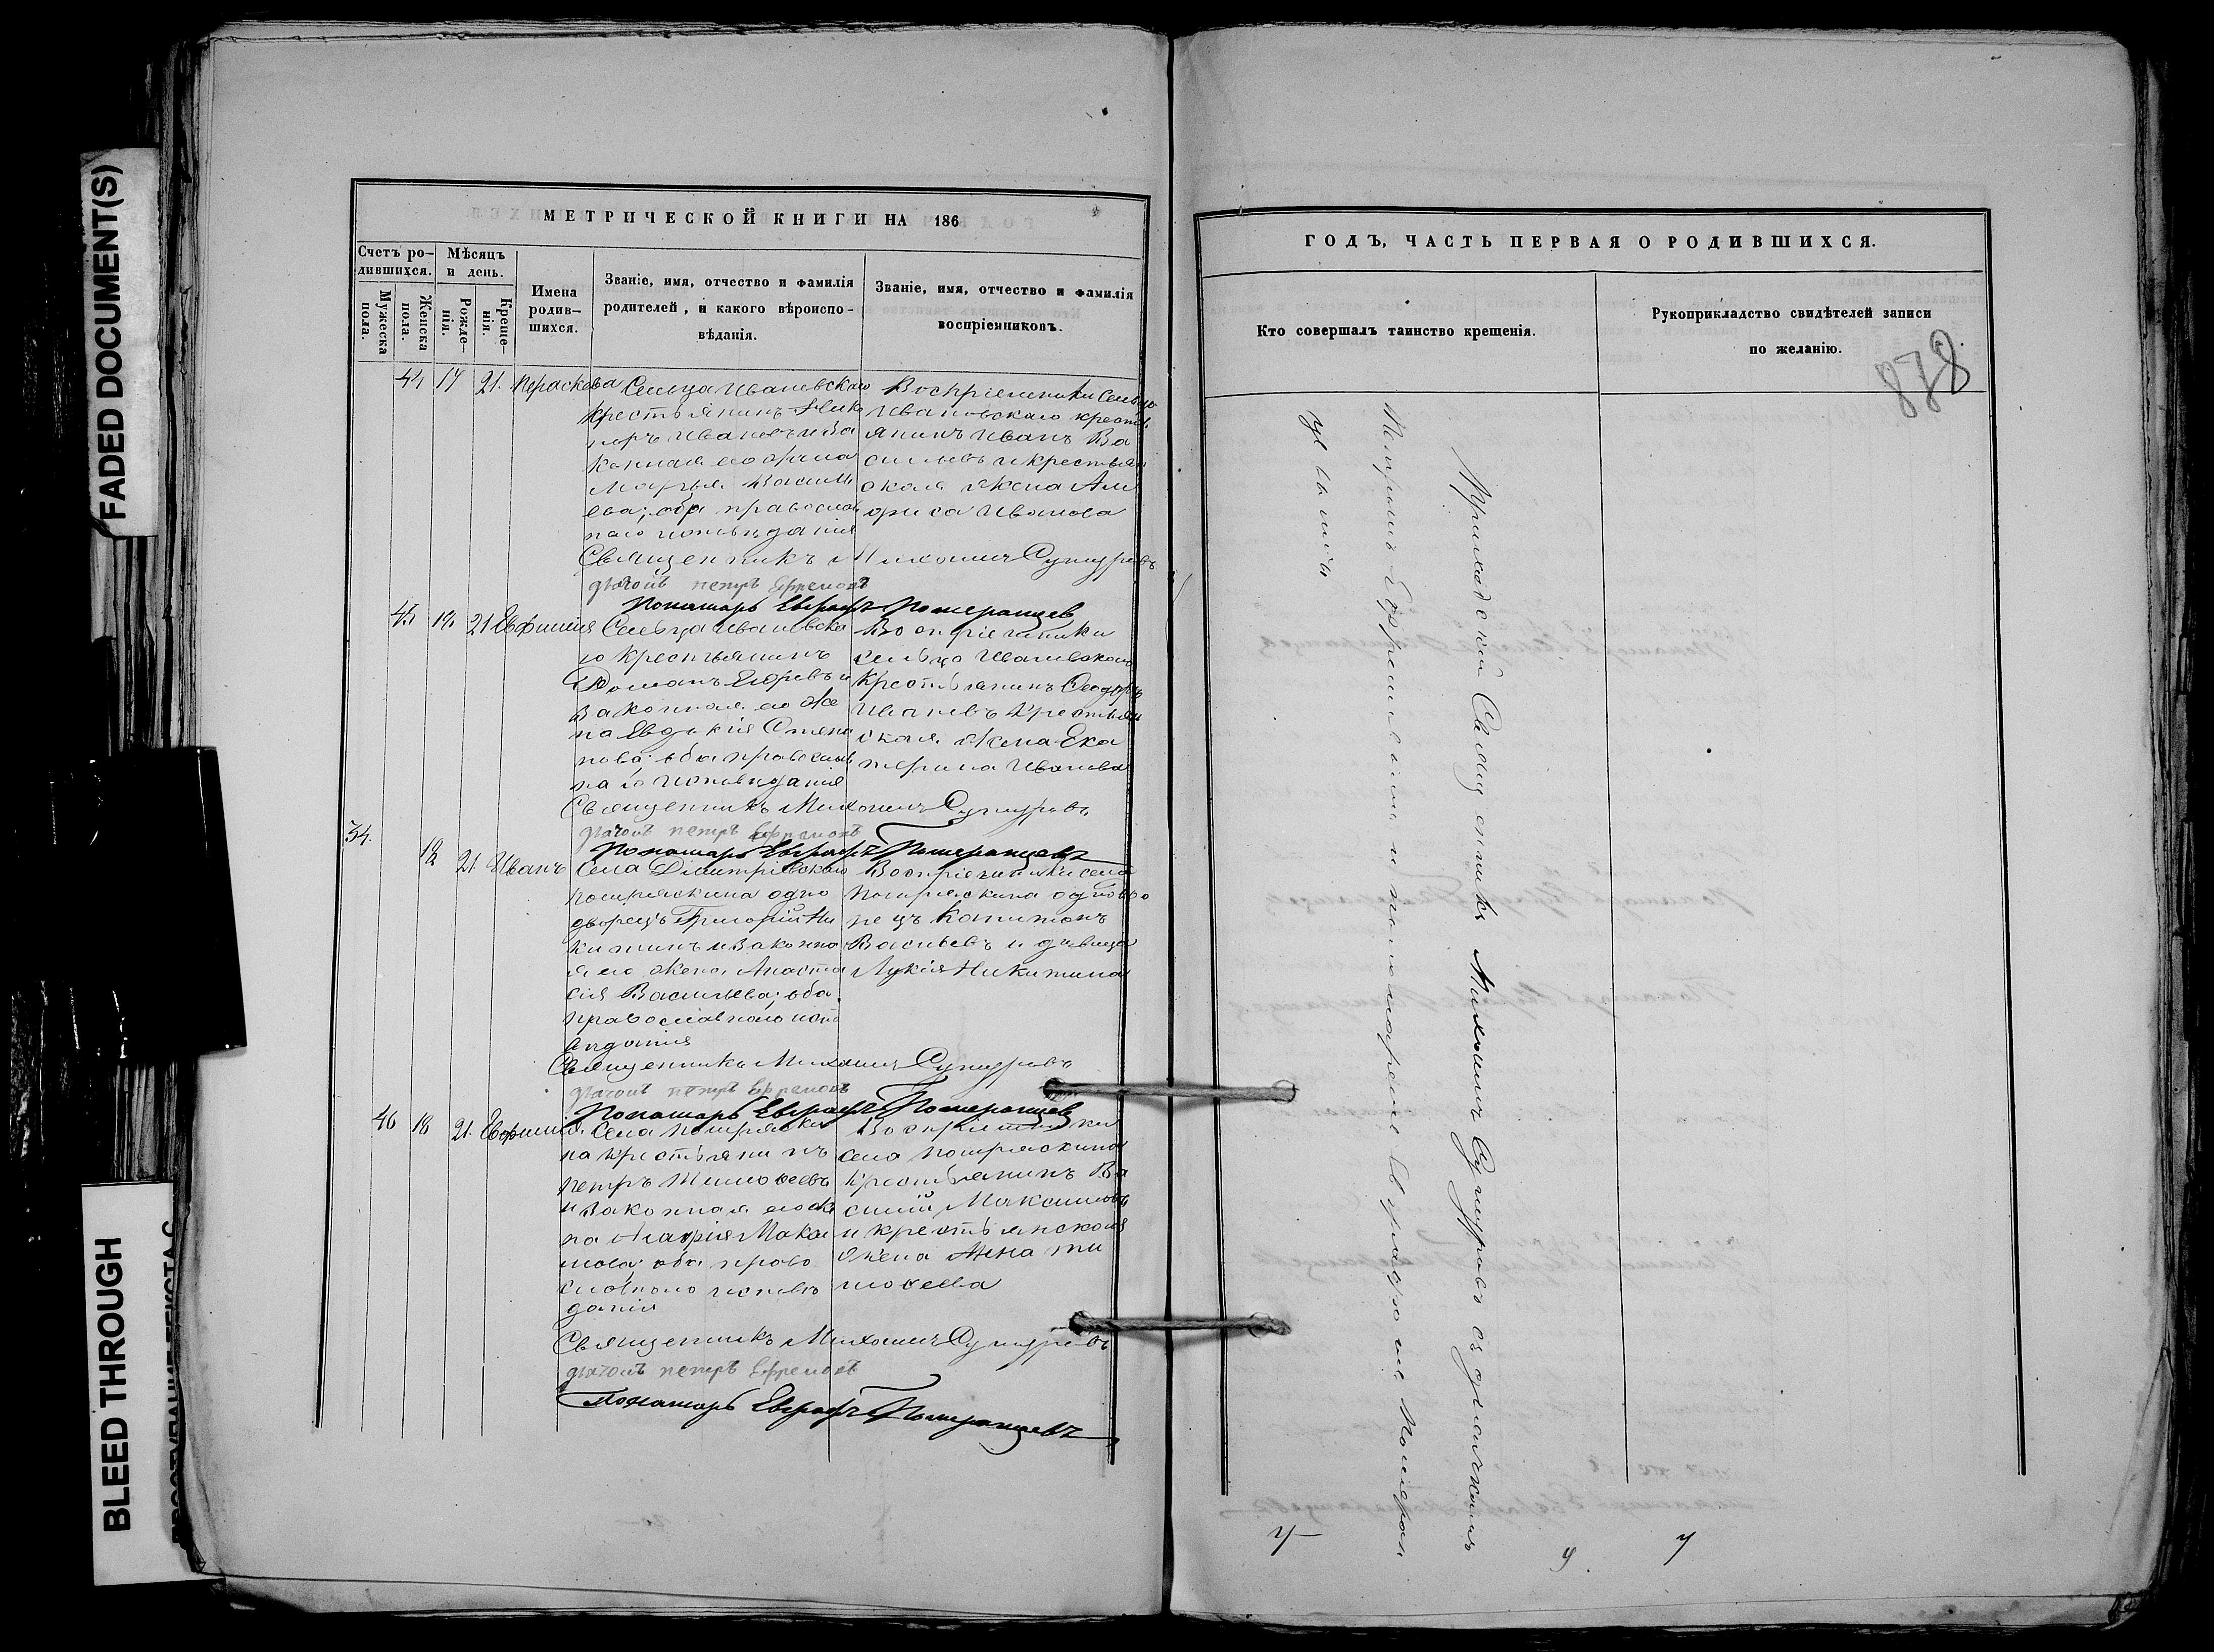 FADED DOCUMENT(S)
BLEED THROUGH
МЕТРИЧЕСКОЙ КНИГИ НА 186
Счетъ ро-
дившихся.
Мѣсяцъ
и день.
Мужеска
пола.
Женска
пола.
Рожде-
нія.
Креще-
нія.
Имена
родив-
шихся.
Званіе, имя, отчество и фамилія
родителей, и какого вѣроиспо-
вѣданія.
Званіе, имя, отчество и фамилія
воспріемниковъ.
44 17 21. Параскева
Сельца Ивановскаго
крестьянинъ Ника
норъ Ивановъ и за
конная его жена
Марья Василь
ева; оба православ
наго исповѣданія
Воспріемники сельца
Ивановскаго кресть
янинъ Иванъ Ва
сильевъ и крестьян
ская жена
Иванова
Священникъ Михаилъ
дьячокъ петръ Ефремовъ
Пономарь Евграфъ Померанцев
45 18 21 Евфимия
Сельца Ивановска
го крестьянинъ
Романъ Егоровъ и
законная его же
на Евдокія Степа
нова; оба православ
наго исповѣданія
Воспріемники
сельца Ивановскаго
крестьянинъ Ѳеодоръ
Ивановъ крестьян
ская жена Ека
терина Иванова
Священникъ Михаилъ
дьячокъ петръ Ефремовъ
Пономарь Евграфъ Померанцевъ
34. 18 21. Иванъ
Села Димитріевскаго
одно
дворецъ Григорій Ни
китинъ и законна
я его жена Анаста
сія Васильева; оба
православнаго испо
вѣданія
Воспріемники села
однодво
рецъ Капитонъ
Васильевъ и дѣвица
Лукія Никитина
Священникъ Михаилъ
дьячокъ петръ Ефремовъ
Пономарь Евграфъ Померанцев
46 18 21. Евфимия.
Села
на крестьянинъ
Петръ Тимоѳеевъ
и законная его же
на Марія
оба право
славнаго исповѣ
данія
Воспріемники
села
крестьянинъ Ва
силій Максимовъ
и крестьянская
жена Анна Ти
моѳеева
Священникъ Михаилъ
дьячокъ петръ Ефремовъ
Пономарь Евграфъ Померанцевъ
ГОДЪ, ЧАСТЬ ПЕРВАЯ О РОДИВШИХСЯ.
Кто совершалъ таинство крещенія.
Рукоприкладство свидѣтелей записи
по желанію.
878
Приходскій Священникъ Михаилъ съ дьячкомъ
Петромъ Ефремовымъ и пономаремъ Евграфомъ Померан
цевымъ